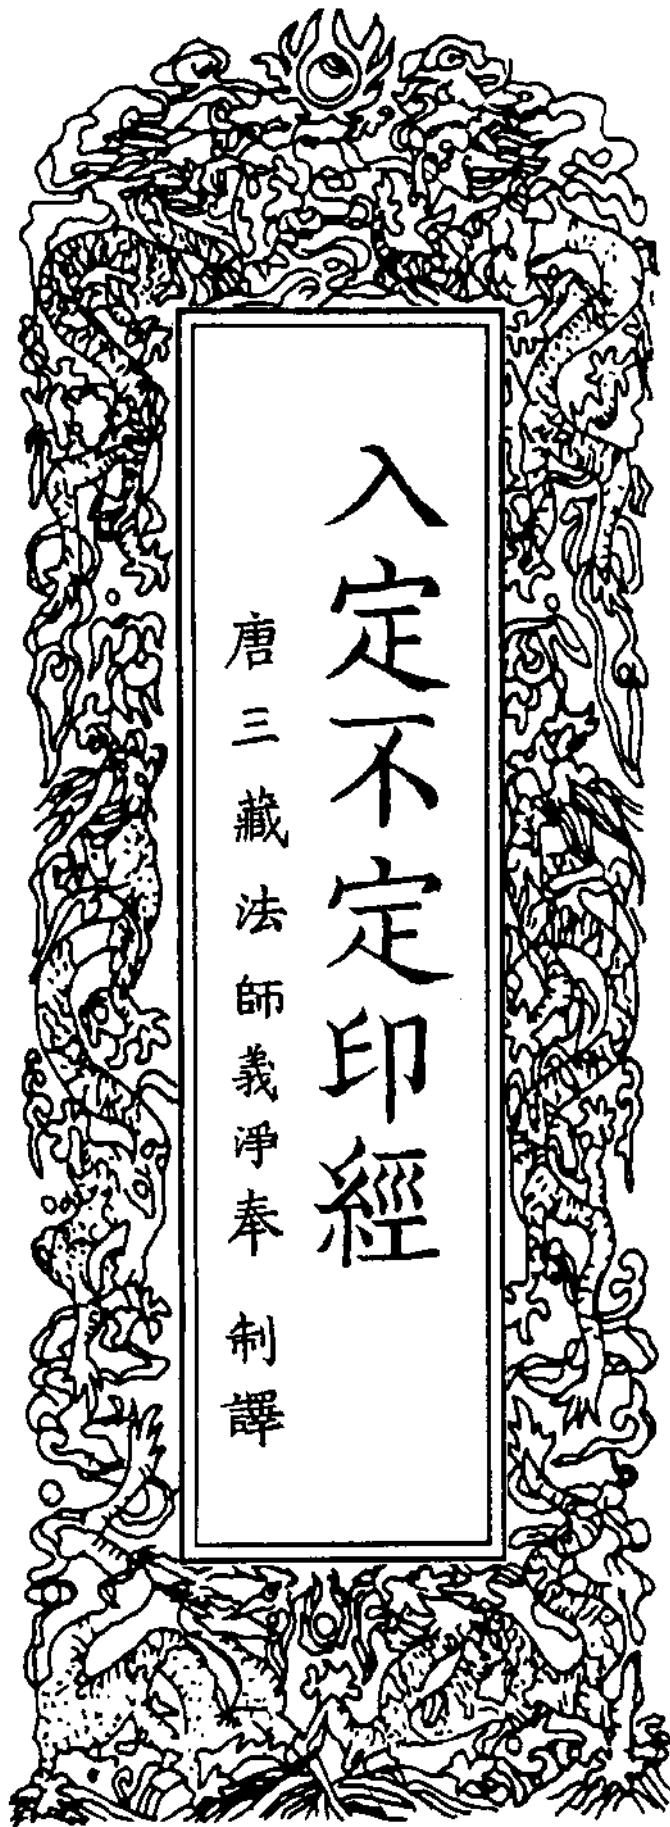 入定不定印經
唐三藏法師義淨奉 制譯